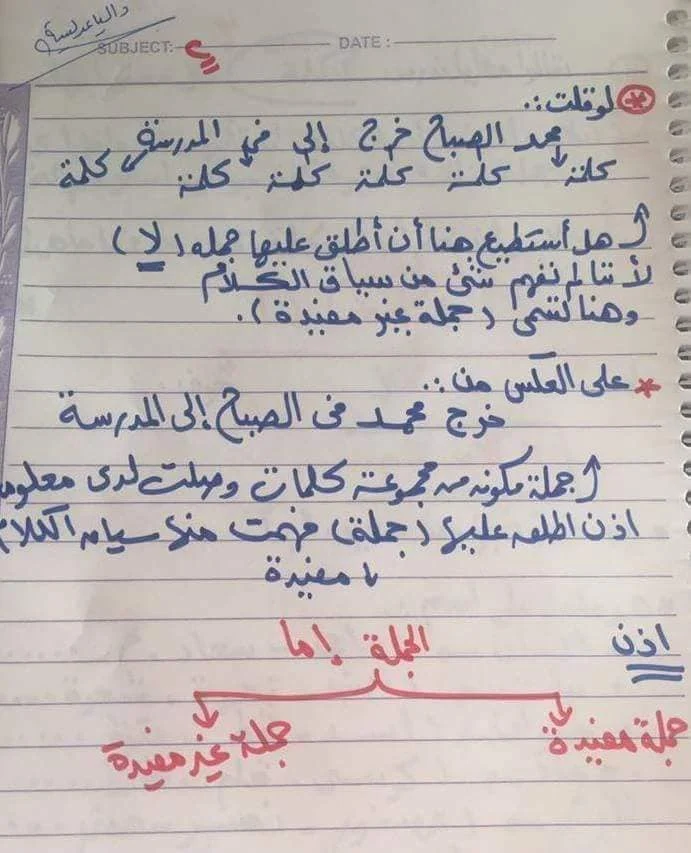 داليا عدلية
SUBJECT:
DATE :
* لو قلت :.
محمد الصباح خرج إلى في المدرسة
كلمة كلمة كلمة كلمة كلمة كلمة
هل أستطيع هنا أن أطلق عليها جمله (لا)
لأننا لم نفهم شئ من سياق الكلام
وهنا تسمى (جملة غير مفيدة).
* على العكس من :.
خرج محمد فى الصباح إلى المدرسة
جملة مكونه من مجموعة كلمات وصلت لدى
اذن اطلق عليها (جملة) فهمت منها سياق الكلام
مفيدة
اذن
الجملة إما
جملة مفيدة
جملة غير مفيدة